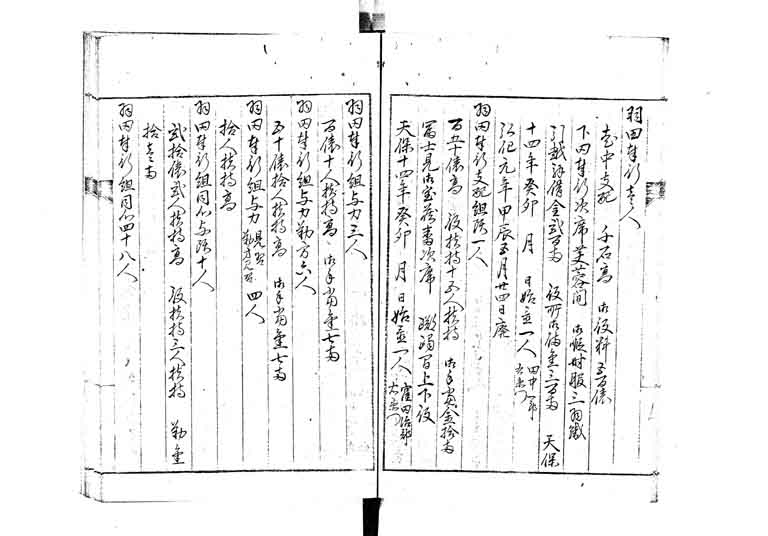 羽田奉行壱人
老中支配 千石高 御役料五百俵
下田奉行次席芙蓉間 御暇時服三羽織
引越拝借金弐百両 役所御諸金三百両 天保
十四年癸卯 月 日始置一人 田中一郎右衛門
弘化元年甲辰五月廿四日廃
羽田奉行支配組頭一人
百五十俵高 役扶持十五人扶持 御手当金拾両
富士見御宝蔵番次席 躑躅間上下役
天保十四年癸卯 月 日始置一人
羽田奉行組与力三人
百俵十人扶持高 御手当金七両
羽田奉行組与力勤方六人
五十俵拾人扶持高 御手当金七両
羽田奉行組与力見習 四人
拾人扶持高
羽田奉行組同心与頭十人
弐拾俵弐人扶持高 役扶持三人扶持 勤金
拾壱両
羽田奉行組同心四十八人